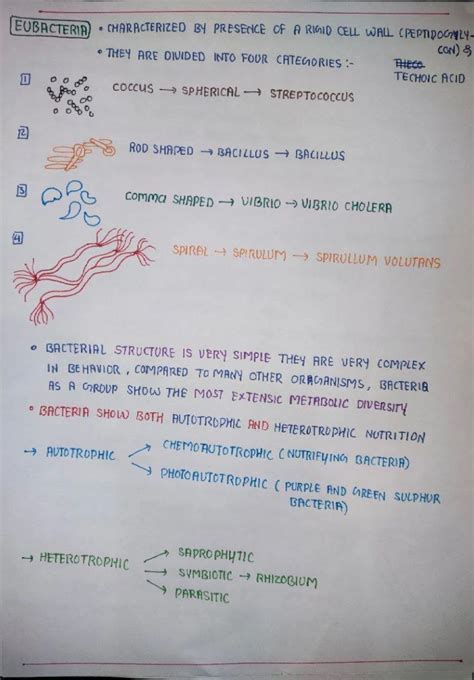 EUBACTERIA • CHARACTERIZED BY PRESENCE OF A RIGID CELL WALL (PEPTIDOGLY-
CON) &
• THEY ARE DIVIDED INTO FOUR CATEGORIES :- THECO
TECHOIC ACID
1 COCCUS → SPHERICAL → STREPTOCOCCUS
2 ROD SHAPED → BACILLUS → BACILLUS
3 COMMA SHAPED → VIBRIO → VIBRIO CHOLERA
4 SPIRAL → SPIRULUM → SPIRULLUM VOLUTANS
• BACTERIAL STRUCTURE IS VERY SIMPLE THEY ARE VERY COMPLEX
IN BEHAVIOR, COMPARED TO MANY OTHER ORAGANISMS, BACTERIA
AS A GROUP SHOW THE MOST EXTENSIC METABOLIC DIVERSITY
• BACTERIA SHOW BOTH AUTOTROPHIC AND HETEROTROPHIC NUTRITION
→ AUTOTROPHIC → CHEMOAUTOTROPHIC (NUTRIFYING BACTERIA)
→ PHOTOAUTOTROPHIC (PURPLE AND GREEN SULPHUR
BACTERIA)
→ HETEROTROPHIC → SAPROPHYTIC
→ SYMBIOTIC → RHIZOBIUM
→ PARASITIC